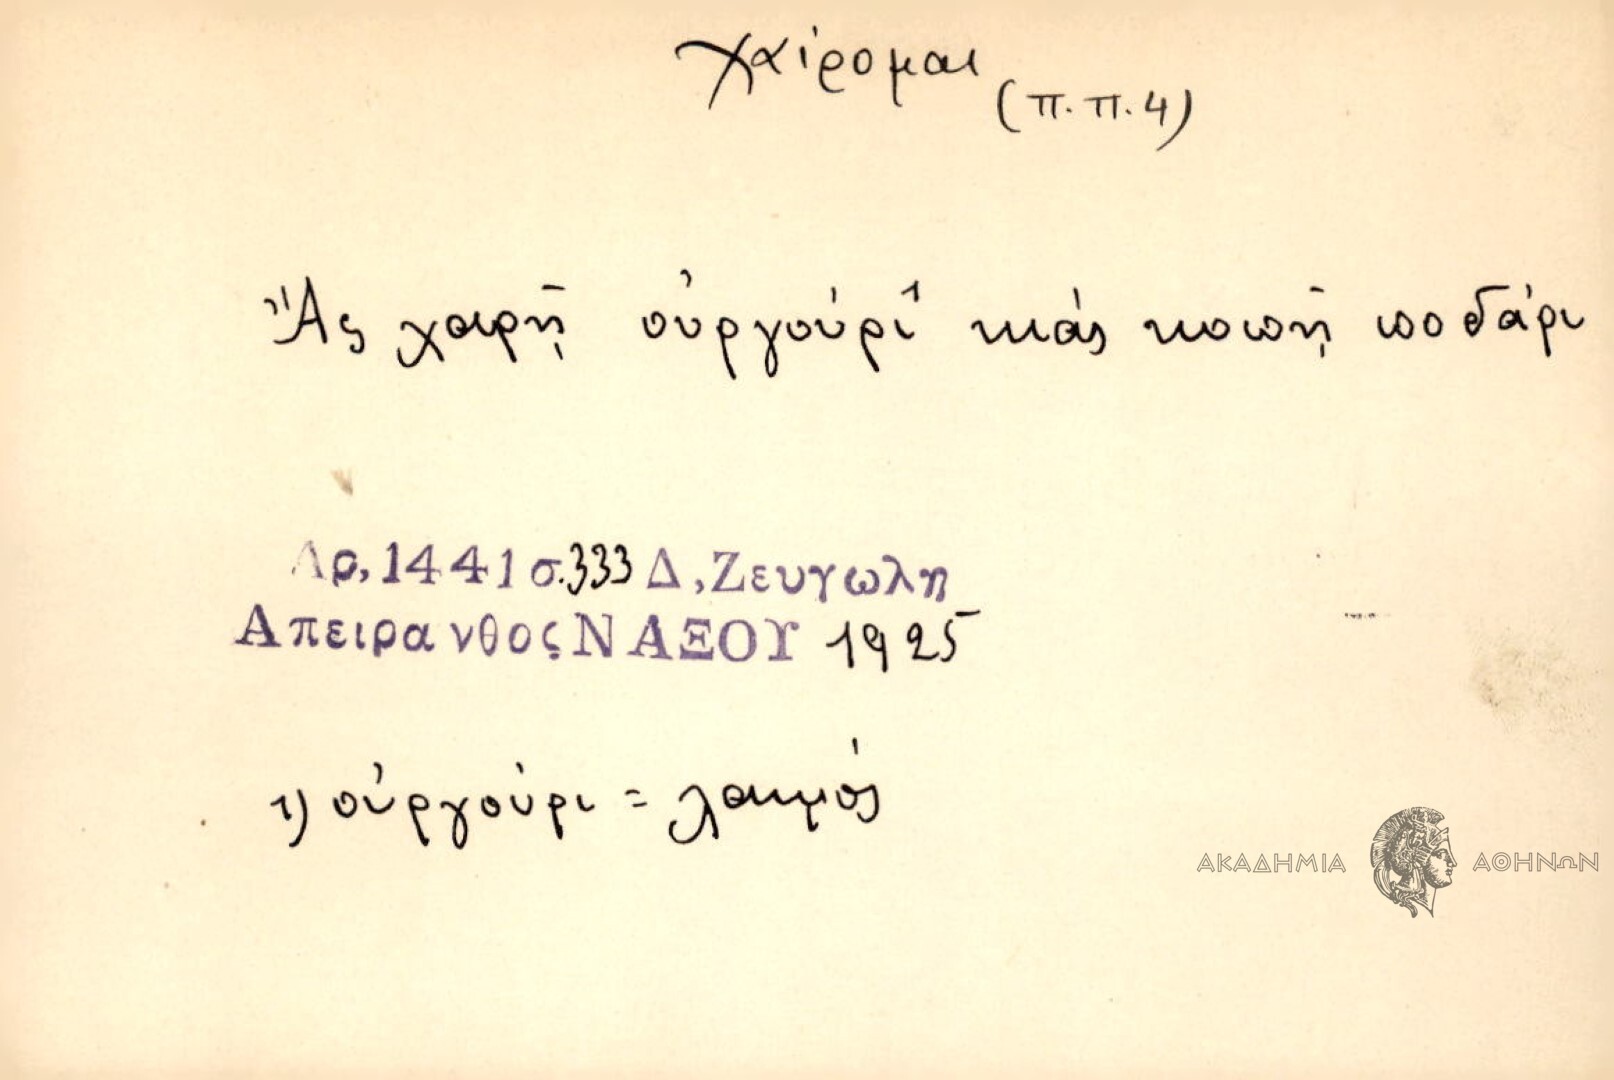 χαίρομαι
(π.π.4)
Ἄς χαιρῇ οὐργούρι¹ κιάς κοπῇ ποδάρι
Αρ, 1441 σ.333 Δ, Ζευγωλη
Απειρανθος ΝΑΞΟΥ 1925
1) οὐργούρι = λαιμός
ΑΚΑΔΗΜΙΑ ΑΘΗΝΩΝ